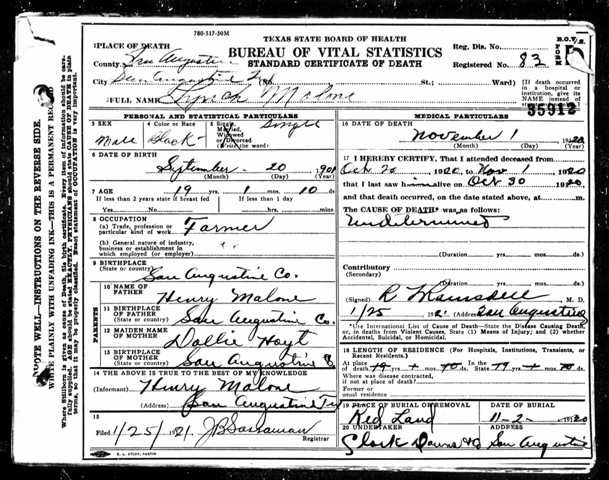 780-317-50M
TEXAS STATE BOARD OF HEALTH
BUREAU OF VITAL STATISTICS
STANDARD CERTIFICATE OF DEATH
Reg. Dis. No.
Registered No. 83
B. O. V. S.
1 PLACE OF DEATH
San Augustine
City San Augustine (No. St.; Ward)
[If death occurred in a hospital or institution, give its NAME instead of
2 FULL NAME Malone
35912
PERSONAL AND STATISTICAL PARTICULARS
3 SEX
Male
4 Color or Race
Black
5 Single, Married, Widowed or Divorced (Write the word)
Single
6 DATE OF BIRTH
September 20 1901
(Month) (Day) (Year)
7 AGE 19 yrs. 1 mos. 10 ds.
If less than 2 years state if breast fed
If less than 1 day
Yes No hrs. mins.
8 OCCUPATION
(a) Trade, profession or particular kind of work
Farmer
(b) General nature of industry, business or establishment in which employed (or employer)
9 BIRTHPLACE
(State or country)
San Augustine Co.
PARENTS
10 NAME OF FATHER
Henry Malone
11 BIRTHPLACE OF FATHER
(State or country)
San Augustine Co.
12 MAIDEN NAME OF MOTHER
Dollie Hoyt
13 BIRTHPLACE OF MOTHER
(State or country)
San Augustine C
14 THE ABOVE IS TRUE TO THE BEST OF MY KNOWLEDGE
(Informant) Henry Malone
(Address) San Augustine Tex
15
Filed 1/25/1921.
Registrar
MEDICAL PARTICULARS
16 DATE OF DEATH
November 1 1920
(Month) (Day) (Year)
17 I HEREBY CERTIFY, That I attended deceased from
Oct 20 1920, to Nov 1 1920
that I last saw him alive on Oct 30 1920
and that death occurred, on the date stated above, at m.
The CAUSE OF DEATH* was as follows:
Undetermined
(Duration) yrs. mos. ds.
Contributory
(Secondary)
(Duration) yrs. mos. ds.
(Signed) M. D.
1/25 1921 (Address) San Augustine
*Use International List of Cause of Death—State the Disease Causing Death, or, in deaths from Violent Causes, State (1) Means of Injury; and (2) whether Accidental, Suicidal, or Homicidal.
18 LENGTH OF RESIDENCE (For Hospitals, Institutions, Transients, or Recent Residents.)
At place of death 19 yrs. mos. ds. State 19 yrs. mos. ds.
Where was disease contracted, if not at place of death?
Former or usual residence
19 PLACE OF BURIAL OR REMOVAL
Red Land
DATE OF BURIAL
11-2- 1920
20 UNDERTAKER
Clark Downs
ADDRESS
San Augustine
NOTE WELL—INSTRUCTIONS ON THE REVERSE SIDE.
WRITE PLAINLY WITH UNFADING INK—THIS IS A PERMANENT RECORD